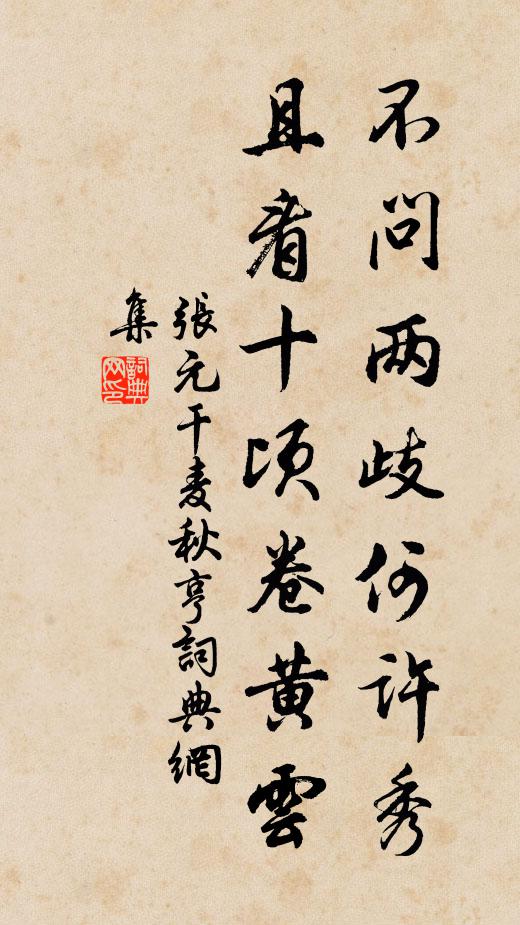 不問两歧何許秀
且看十頃卷黄雲
張元干麦秋亭詞典網
集
詞典
网印